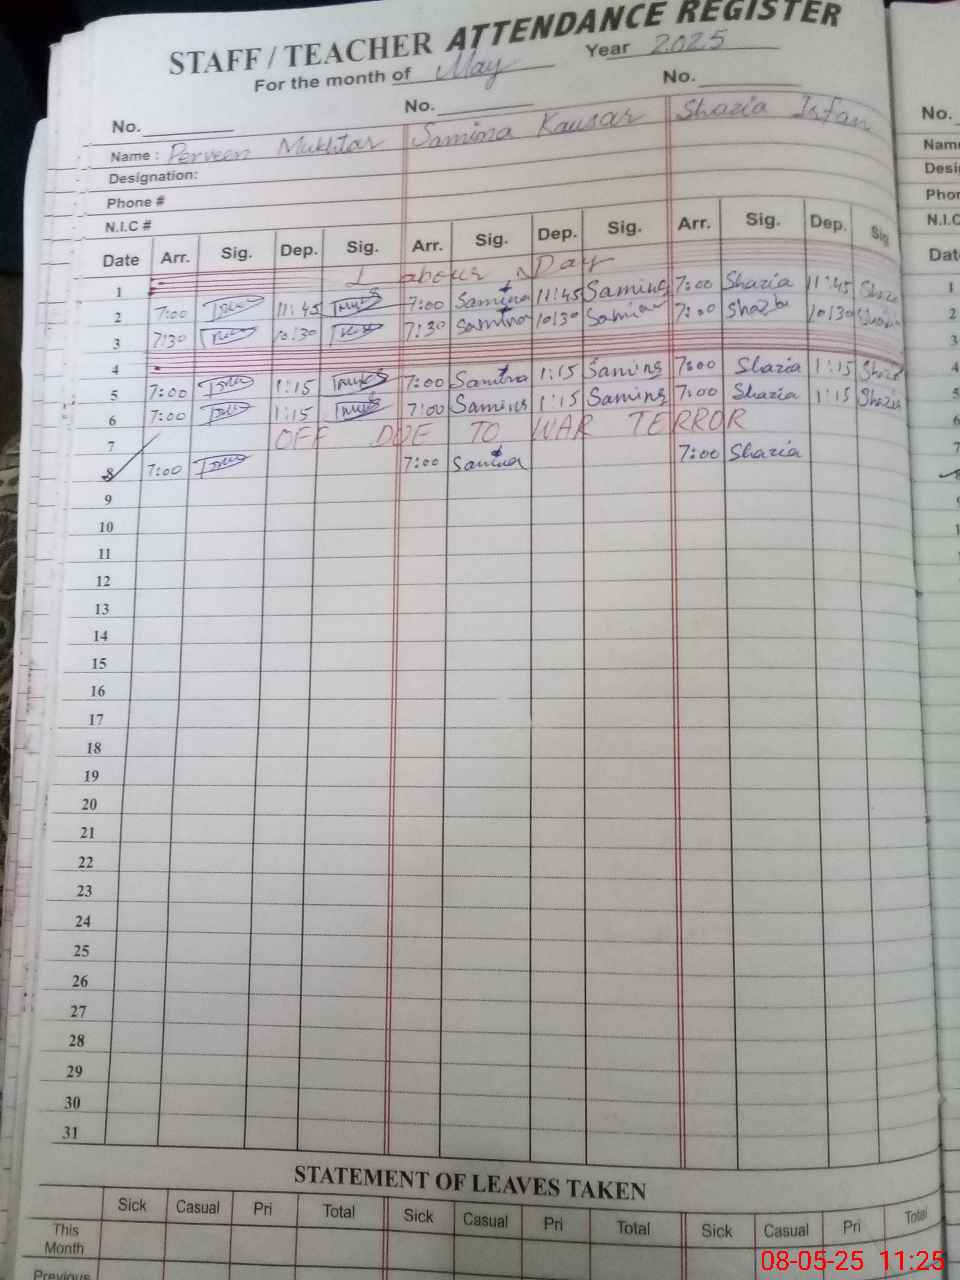 STAFF / TEACHER ATTENDANCE REGISTER
For the month of May Year 2025
No. No. No.
Name : Perveen Mukhtar Samina Kausar Shazia Irfan
Designation:
Phone #
N.I.C #
Date Arr. Sig. Dep. Sig. Arr. Sig. Dep. Sig. Arr. Sig. Dep. Sig
1 Labour Day
2 7:00 11:45 7:00 Samina 11:45 Samina 7:00 Shazia 11:45 Shazia
3 7:30 10:30 7:30 Samina 10:30 Samina 7:00 Shazia 10:30 Shazia
4
5 7:00 1:15 7:00 Samina 1:15 Samina 7:00 Shazia 1:15 Shazia
6 7:00 1:15 7:00 Samina 1:15 Samina 7:00 Shazia 1:15 Shazia
7 OFF DUE TO WAR TERROR
8 7:00 7:00 Samina 7:00 Shazia
9
10
11
12
13
14
15
16
17
18
19
20
21
22
23
24
25
26
27
28
29
30
31
STATEMENT OF LEAVES TAKEN
Sick Casual Pri Total Sick Casual Pri Total Sick Casual Pri Total
This
Month
Previous
No.
Nam
Desi
Phor
N.I.C
Dat
1
2
3
4
5
6
7
08-05-25 11:25